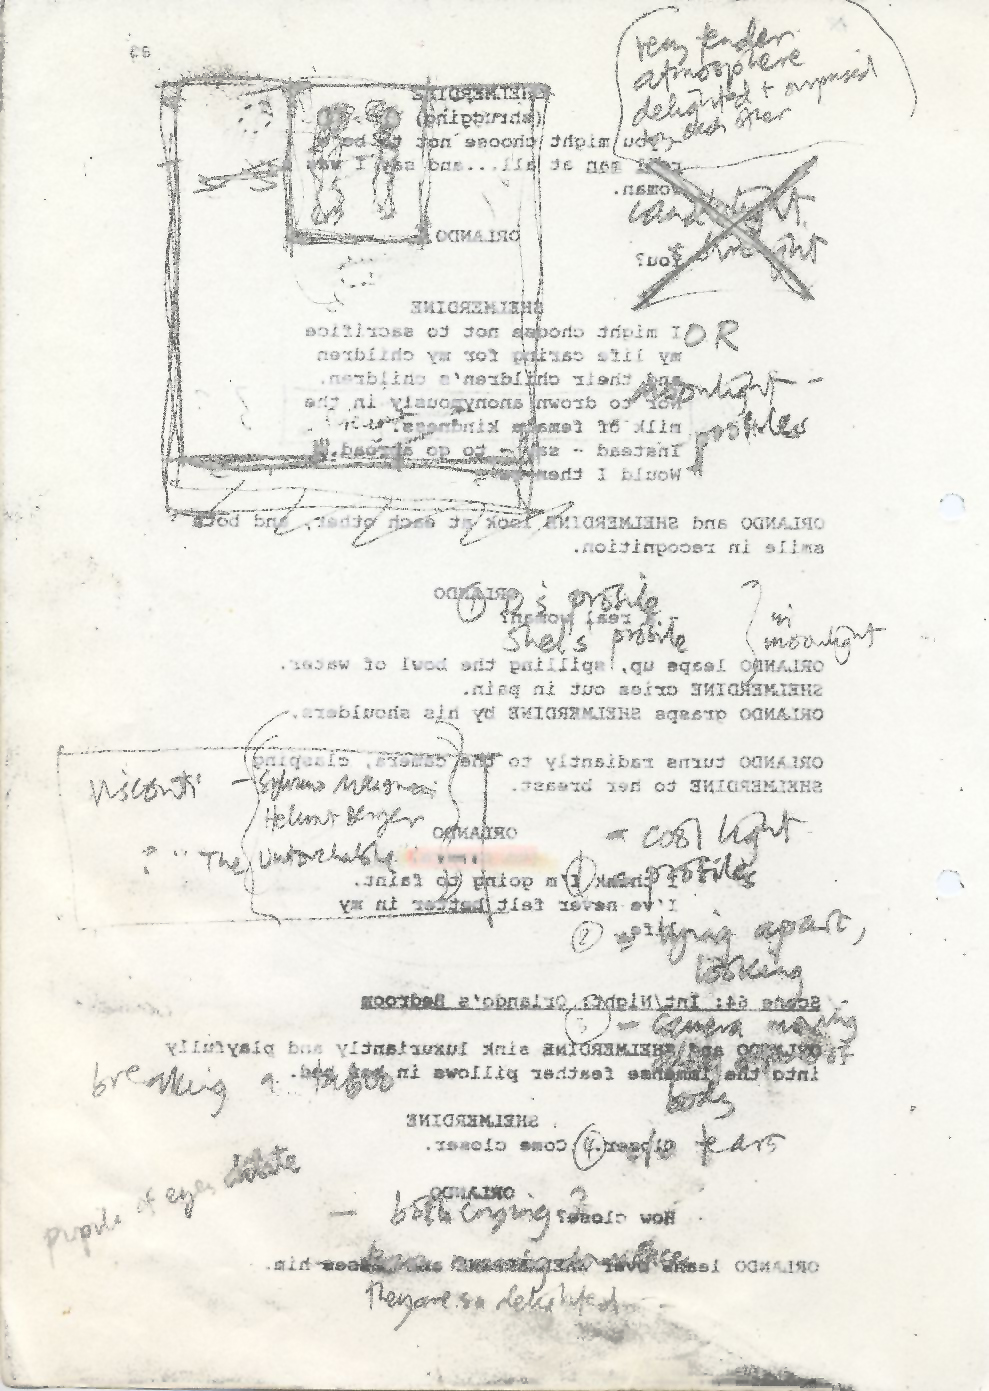 very tender
atmosphere
delighted + surprised
by each other
83
SHELMERDINE
(shrugging)
you might choose not to be a
real man at all...and say I was a
woman.
candlelight
ORLANDO
You?
SHELMERDINE
I might choose not to sacrifice
my life caring for my children
and their children's children.
Nor to drown anonymously in the
milk of female kindness.
Instead - say - to go abroad.
Would I then
OR
moonlight -
profiles
ORLANDO and SHELMERDINE look at each other, and both
smile in recognition.
ORLANDO
- a real woman?
① O's profile
Shel's profile
in
moonlight
ORLANDO leaps up, spilling the bowl of water.
SHELMERDINE cries out in pain.
ORLANDO grasps SHELMERDINE by his shoulders.
ORLANDO turns radiantly to the camera, clasping
SHELMERDINE to her breast.
Visconti -
Helmut Berger
? " The Untouchable
ORLANDO
I think I'm going to faint.
I've never felt better in my
life.
- cool light
① - profiles
② lying apart,
looking
Scene 64: Int/Night: Orlando's Bedroom
③ - camera moving
body
ORLANDO and SHELMERDINE sink luxuriantly and playfully
into the immense feather pillows in her bed.
breaking a taboo
SHELMERDINE
Closer. Come closer.
④ tears
pupils of eyes dilate
ORLANDO
How close?
- both crying?
ORLANDO leans over SHELMERDINE and kisses him.
They are so delighted